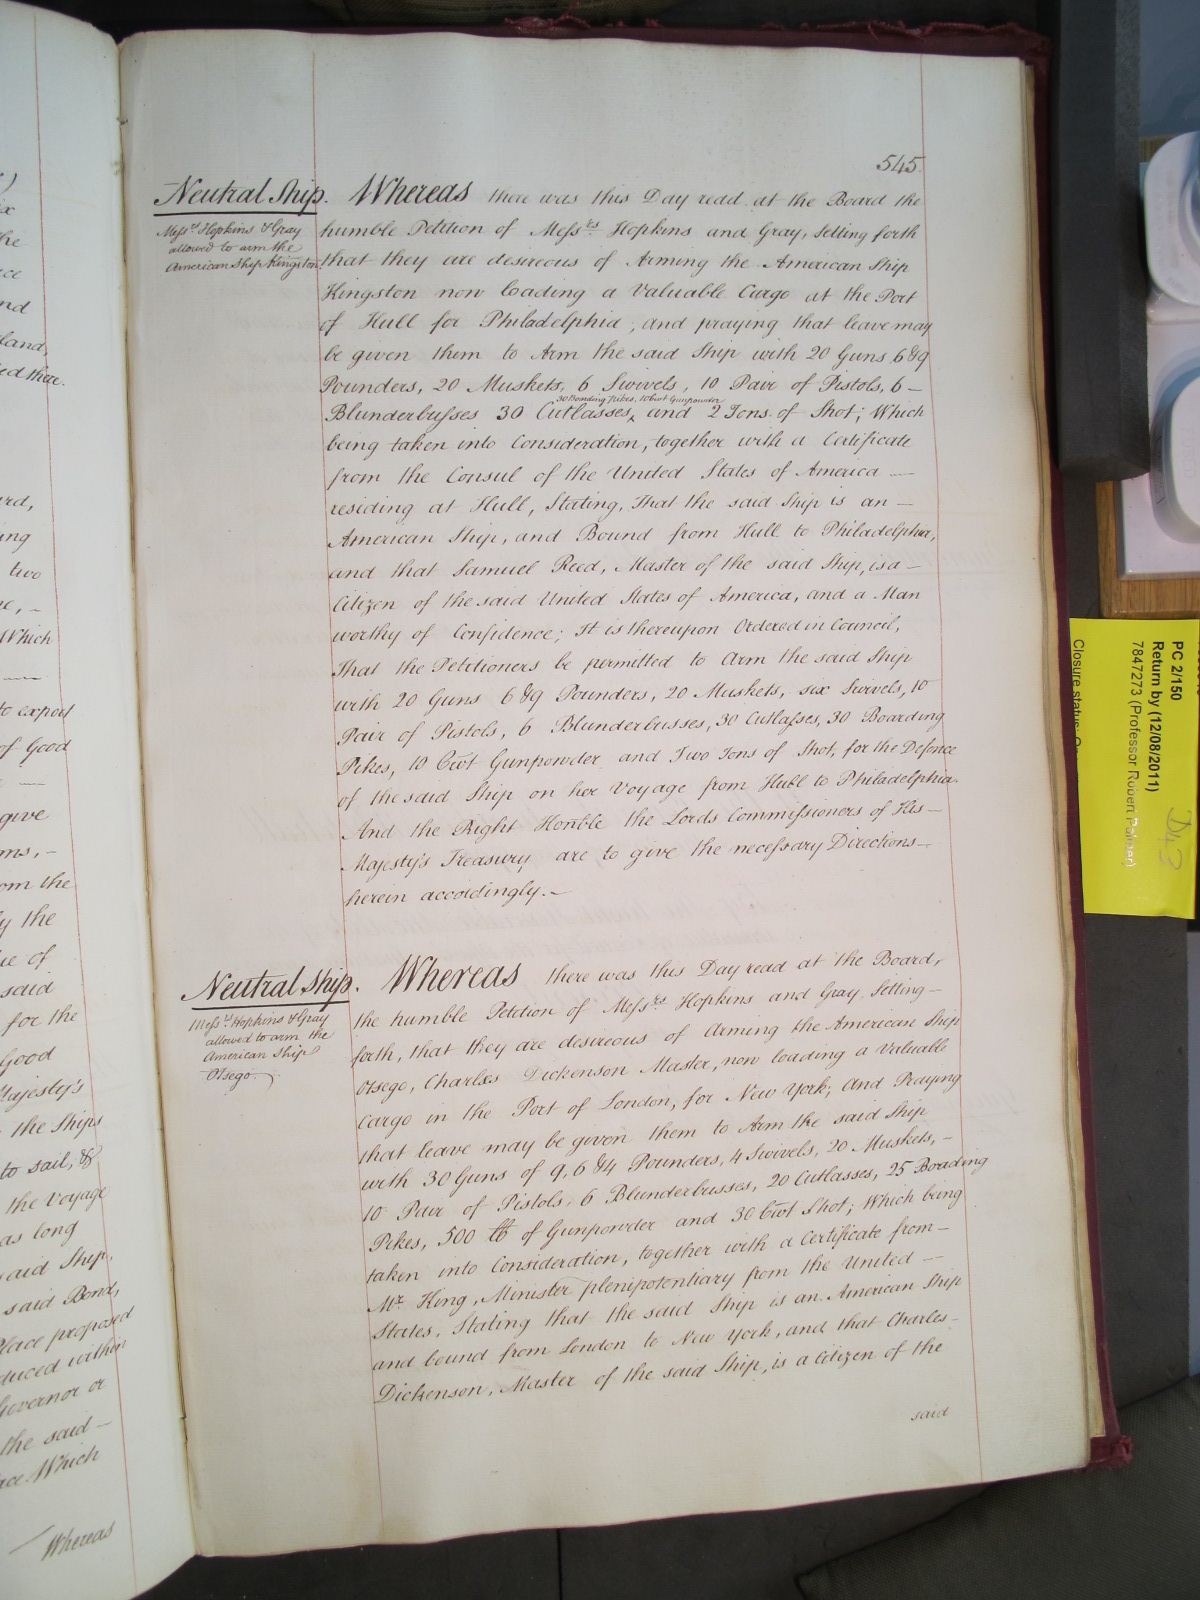 545.
Neutral Ship.
Mess.rs Hopkins & Gray
allowed to arm the
American Ship Kingston.
Whereas there was this Day read at the Board the
humble Petition of Mess.rs Hopkins and Gray, Setting forth
that they are desireous of Arming the American Ship
Kingston now loading a Valuable Cargo at the Port
of Hull for Philadelphia, and praying that leave may
be given them to Arm the said Ship with 20 Guns 6 & 9
Pounders, 20 Muskets, 6 Swivels, 10 Pair of Pistols, 6 –
30 Boarding Pikes, 10 Cwt Gunpowder
Blunderbusses 30 Cutlasses, and 2 Tons of Shot; Which
being taken into Consideration, together with a Certificate
from the Consul of the United States of America —
residing at Hull, Stating, That the said Ship is an –
American Ship, and Bound from Hull to Philadelphia,
and that Samuel Reed, Master of the said Ship, is a –
Citizen of the said United States of America, and a Man
worthy of Confidence; It is thereupon Ordered in Council,
That the Petitioners be permitted to Arm the said Ship
with 20 Guns 6 & 9 Pounders, 20 Muskets, six Swivels, 10
Pair of Pistols, 6 Blunderbusses, 30 Cutlasses, 30 Boarding
Pikes, 10 Cwt Gunpowder and Two Tons of Shot, for the Defence
of the said Ship on her Voyage from Hull to Philadelphia.
And the Right Honble the Lords Commissioners of His –
Majesty's Treasury are to give the necessary Directions –
herein accordingly. –
Neutral Ship.
Mess.rs Hopkins & Gray
allowed to arm the
American Ship
Otsego.
Whereas there was this Day read at the Board,
the humble Petition of Mess.rs Hopkins and Gray, Setting –
forth, that they are desireous of Arming the American Ship
Otsego, Charles Dickenson Master, now loading a Valuable
Cargo in the Port of London, for New York; And Praying
that leave may be given them to Arm the said Ship
with 30 Guns of 9, 6 & 4 Pounders, 4 Swivels, 20 Muskets, –
10 Pair of Pistols, 6 Blunderbusses, 20 Cutlasses, 25 Boarding
Pikes, 500 lb of Gunpowder and 30 Cwt Shot; Which being
taken into Consideration, together with a Certificate from –
Mr. King, Minister plenipotentiary from the United –
States, Stating that the said Ship is an American Ship
and bound from London to New York, and that Charles –
Dickenson, Master of the said Ship, is a Citizen of the
said
the
nd
land,
ard,
ing
two
Which
to export
of Good
give
om the
by the
ue of
said
for the
Good
Majesty's
the Ships
to sail, &
the Voyage
as long
said Ship,
said Bond,
Place proposed
duced within
Governor or
the said –
ace. Which
Whereas
PC 2/150
Return by (12/08/2011)
7847273 (Professor Robert Palmer)
Closure status:
D43